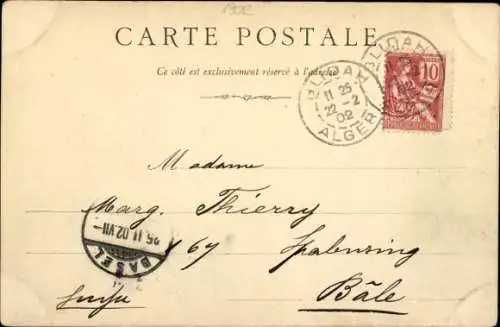 CARTE POSTALE
Ce côté est exclusivement réservé à l'adresse
BLIDAH
11 25
22 -2
02
ALGER
BLIDAH
10
Madame
Marg. Thierry
67 Spalenring
Bâle
Suisse
25.II.02.VII-
BASEL